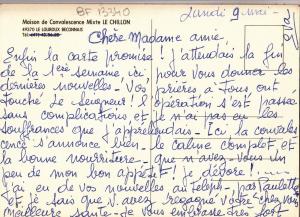 BF 13340
Lundi 9 mai
Maison de Convalescence Mixte LE CHILLON
49370 LE LOUROUX BECONNAIS
Chère Madame amie,
Enfin la carte promise ! J'attendais la fin
de la 1ère semaine, ici pour vous donner les
dernières nouvelles - Vos prières à Tous, ont
touché Le Seigneur ! L'opération s'est passée
sans complications, et je n'ai pas eu les
souffrances que j'appréhendais - Ici la convales
cence s'annonce bien, le calme complet, et
la bonne nourriture - que n'avez-vous un
peu de mon bon appétit ! je dévore ! ...
j'ai eu de vos nouvelles au Téléph. par Paulette
et je sais que v. avez regagné votre chez vous
meilleure santé - Je vous